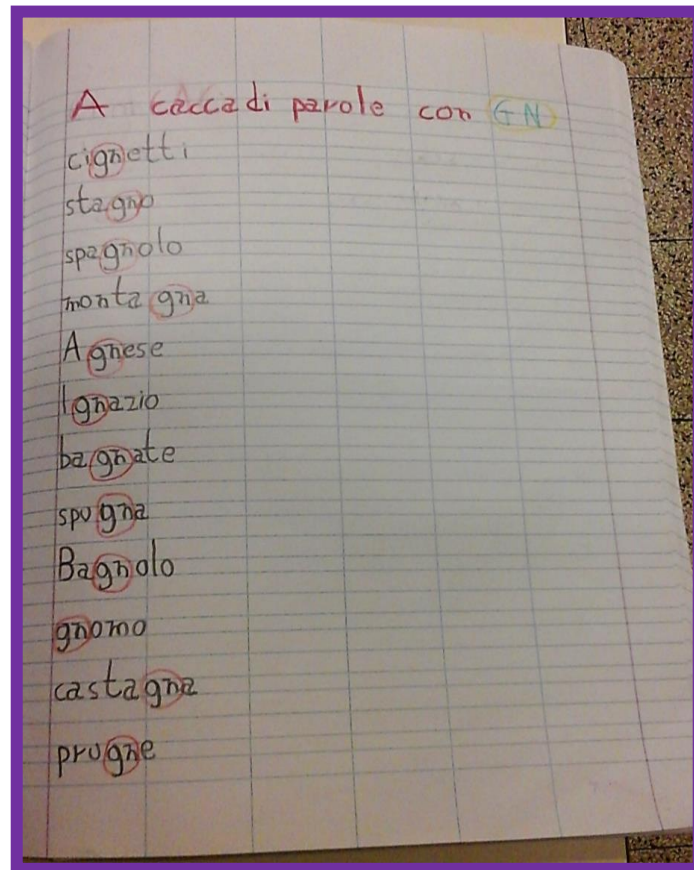 A caccadi parole con GN
cignetti
stagno
spagnolo
montagna
Agnese
Ignazio
bagnate
spugna
Bagnolo
gnomo
castagna
prugne